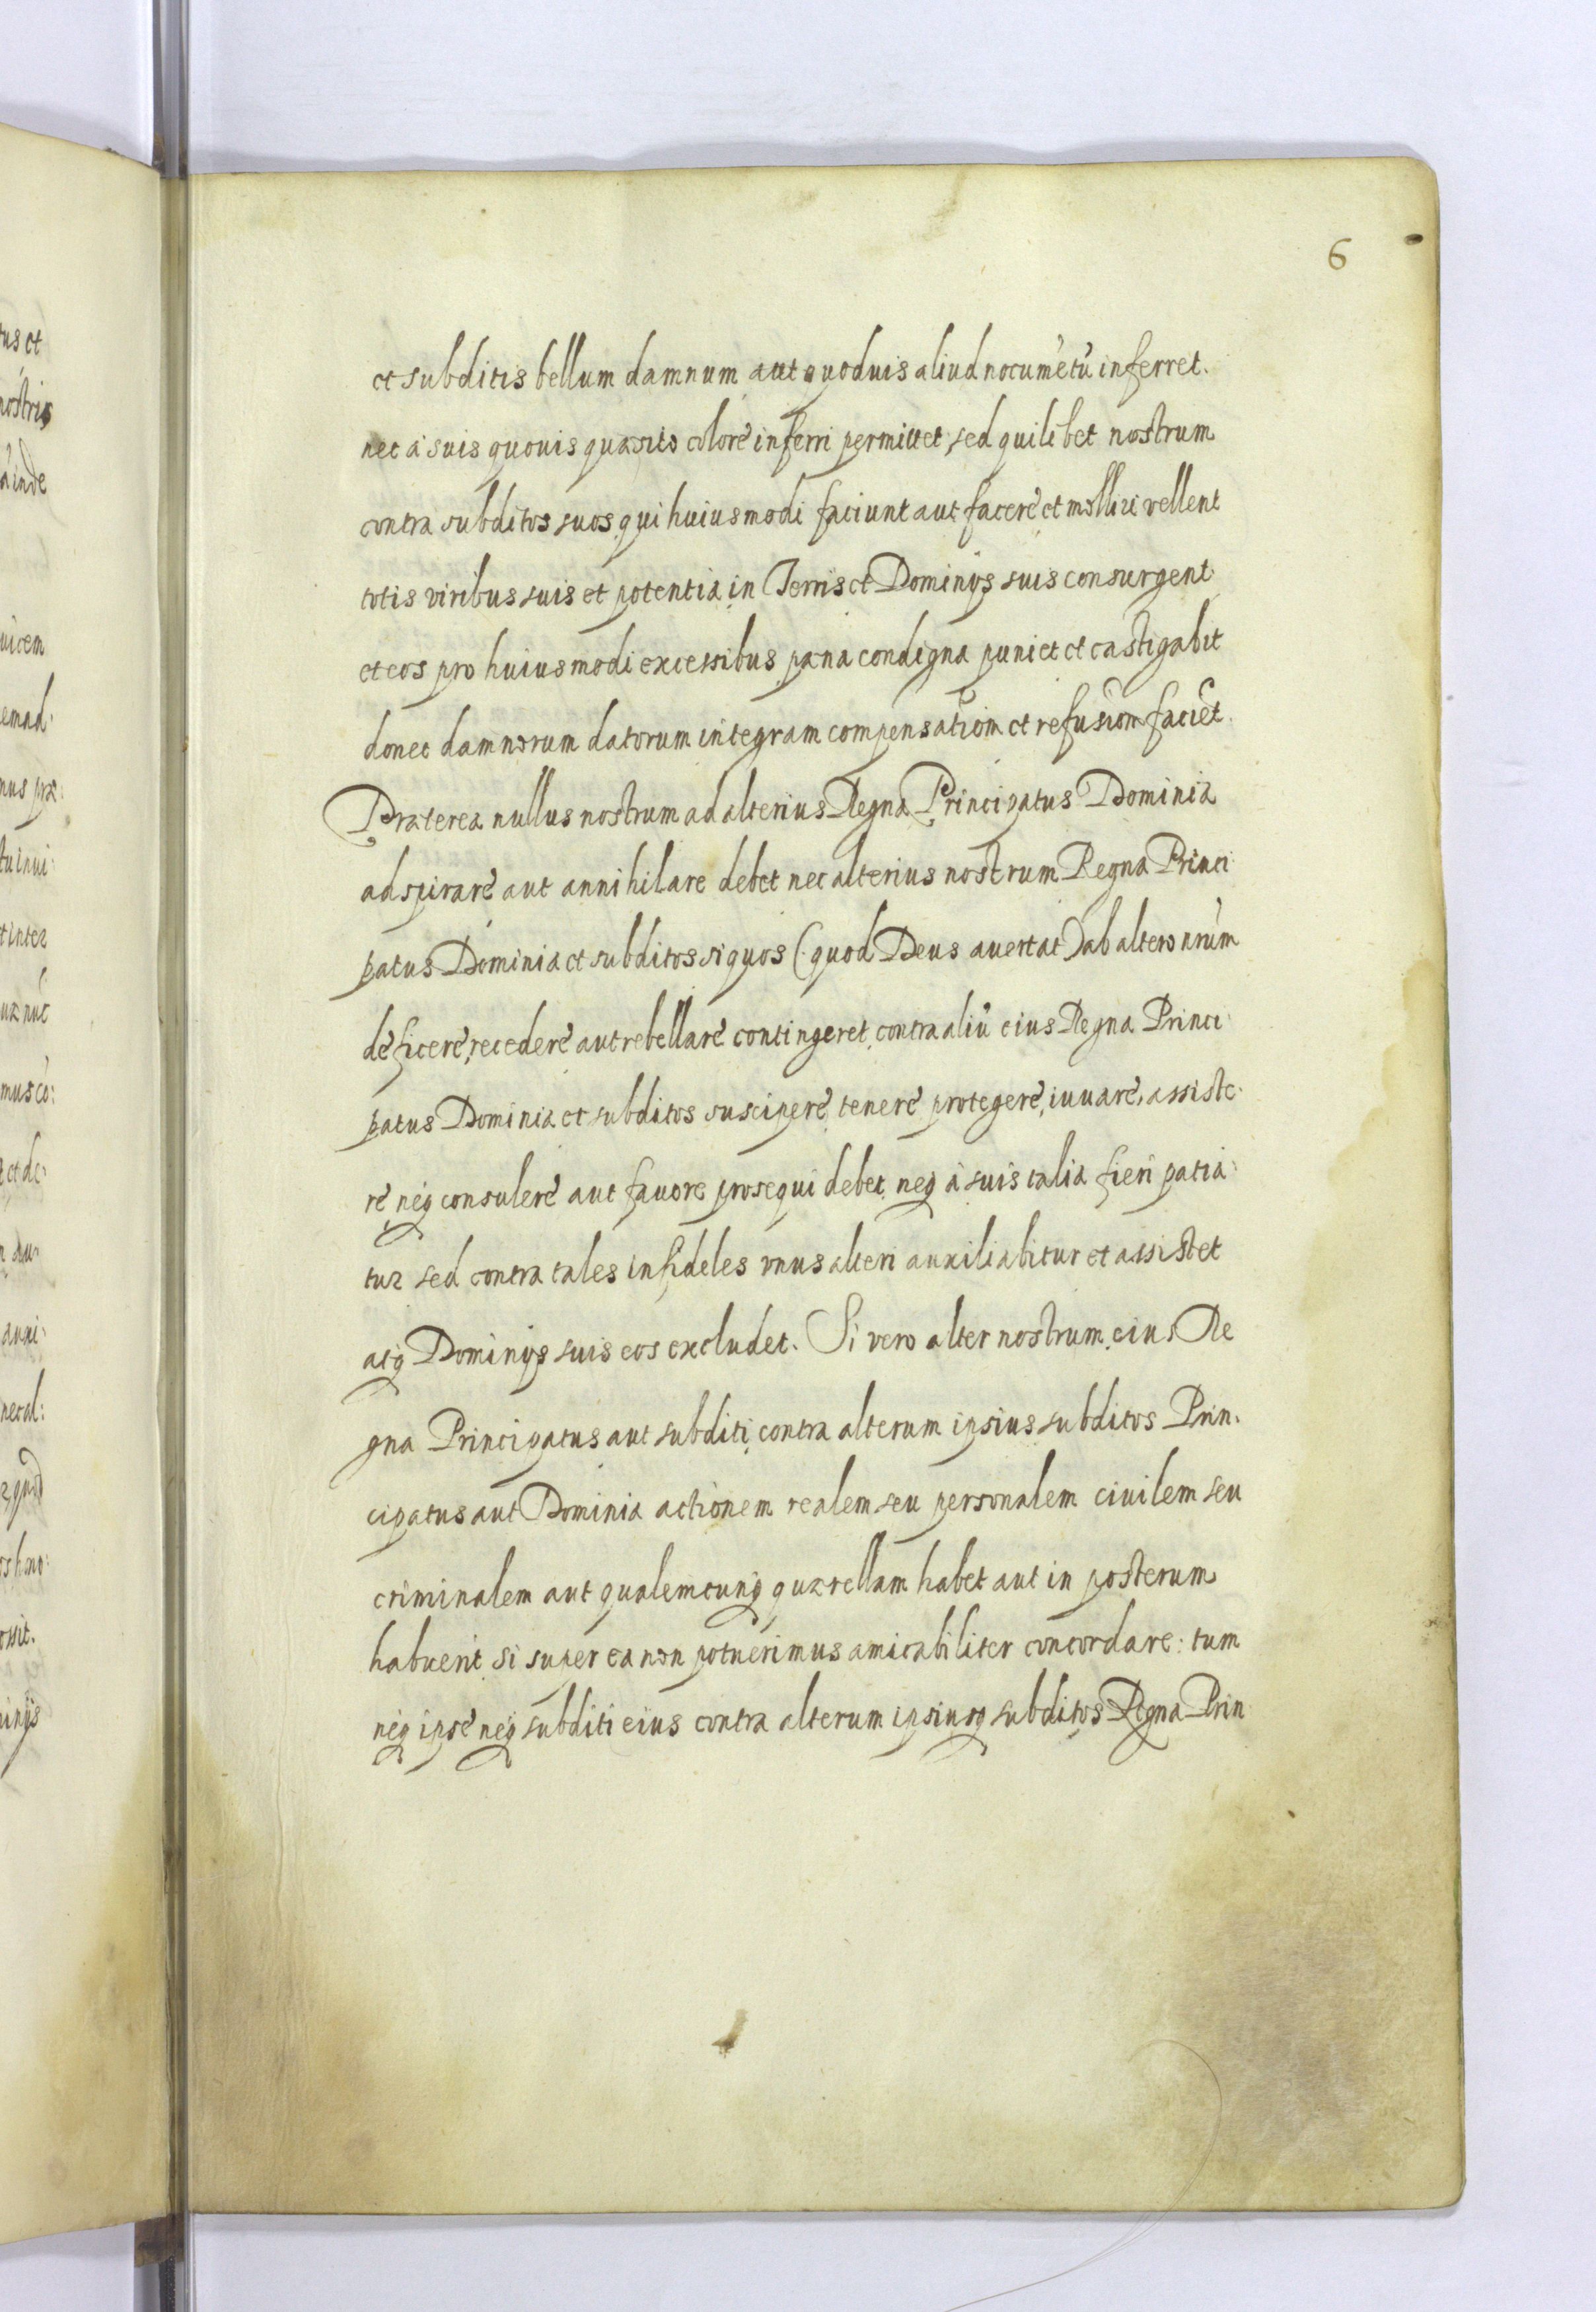 6
et subditis bellum damnum aut quoduis aliud nocumētū inferret.
nec à suis quouis quæsito colore inferri permittet, sed quilibet nostrum
contra subditos suos, qui huiusmodi faciunt aut facere et molliri vellent
totis viribus suis et potentia, in Terris et Dominijs suis consurgent
et eos pro huiusmodi excessibus pæna condigna puniet et castigabit
donec damnorum datorum integram compensatiōm et refusiōm faciēt.
Præterea nullus nostrum ad alterius Regna Principatus Dominia
adspirare aut annihilare debet nec alterius nostrum Regna Princi
patus Dominia et subditos si quos (quod Deus auertat) ab altero nr̄um
deficere, recedere aut rebellare contingeret, contra aliū eius Regna Princi
patus Dominia et subditos suscipere, tenere protegere, iuuare, assiste
re neq consulere aut fauore prosequi debet, neq à suis talia fieri patia
tur sed contra tales infideles vnus alteri auxiliabitur et assistet
atq Dominijs suis eos excludet. Si vero alter nostrum, eius Re
gna Principatus aut subditi, contra alterum ipsius subditos Prin
cipatus aut Dominia actionem realem seu personalem ciuilem seu
criminalem aut qualemcunq quærellam habet aut in posterum
habuerit, si super ea non potuerimus amicabiliter concordare: tum
neq ipse neq subditi eius contra alterum ipsiusq subditos Regna Prin